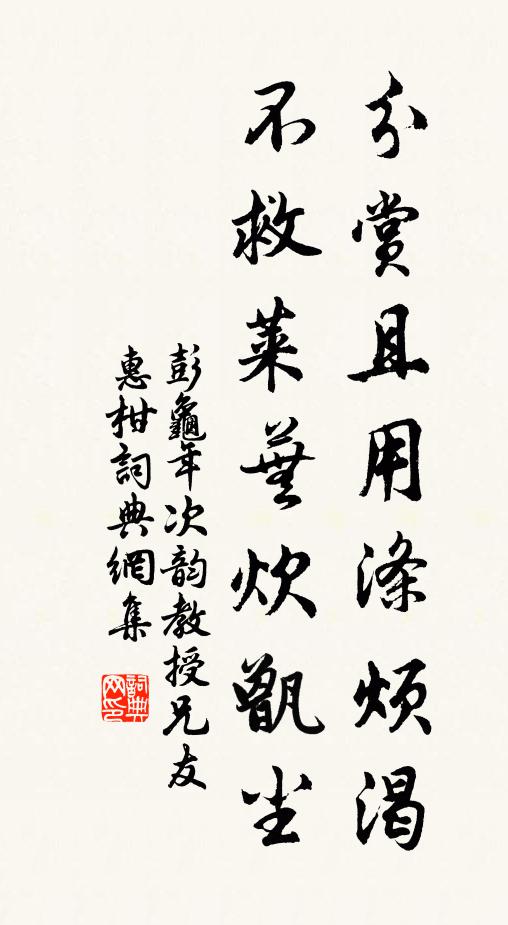 分賞且用滌煩渴
不救萊蕪炊甑尘
彭龜年次韵教授兄友
惠柑詞典網集
詞典网印